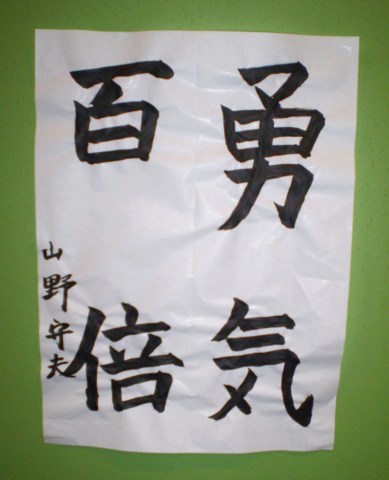 勇気
百倍
山野守夫